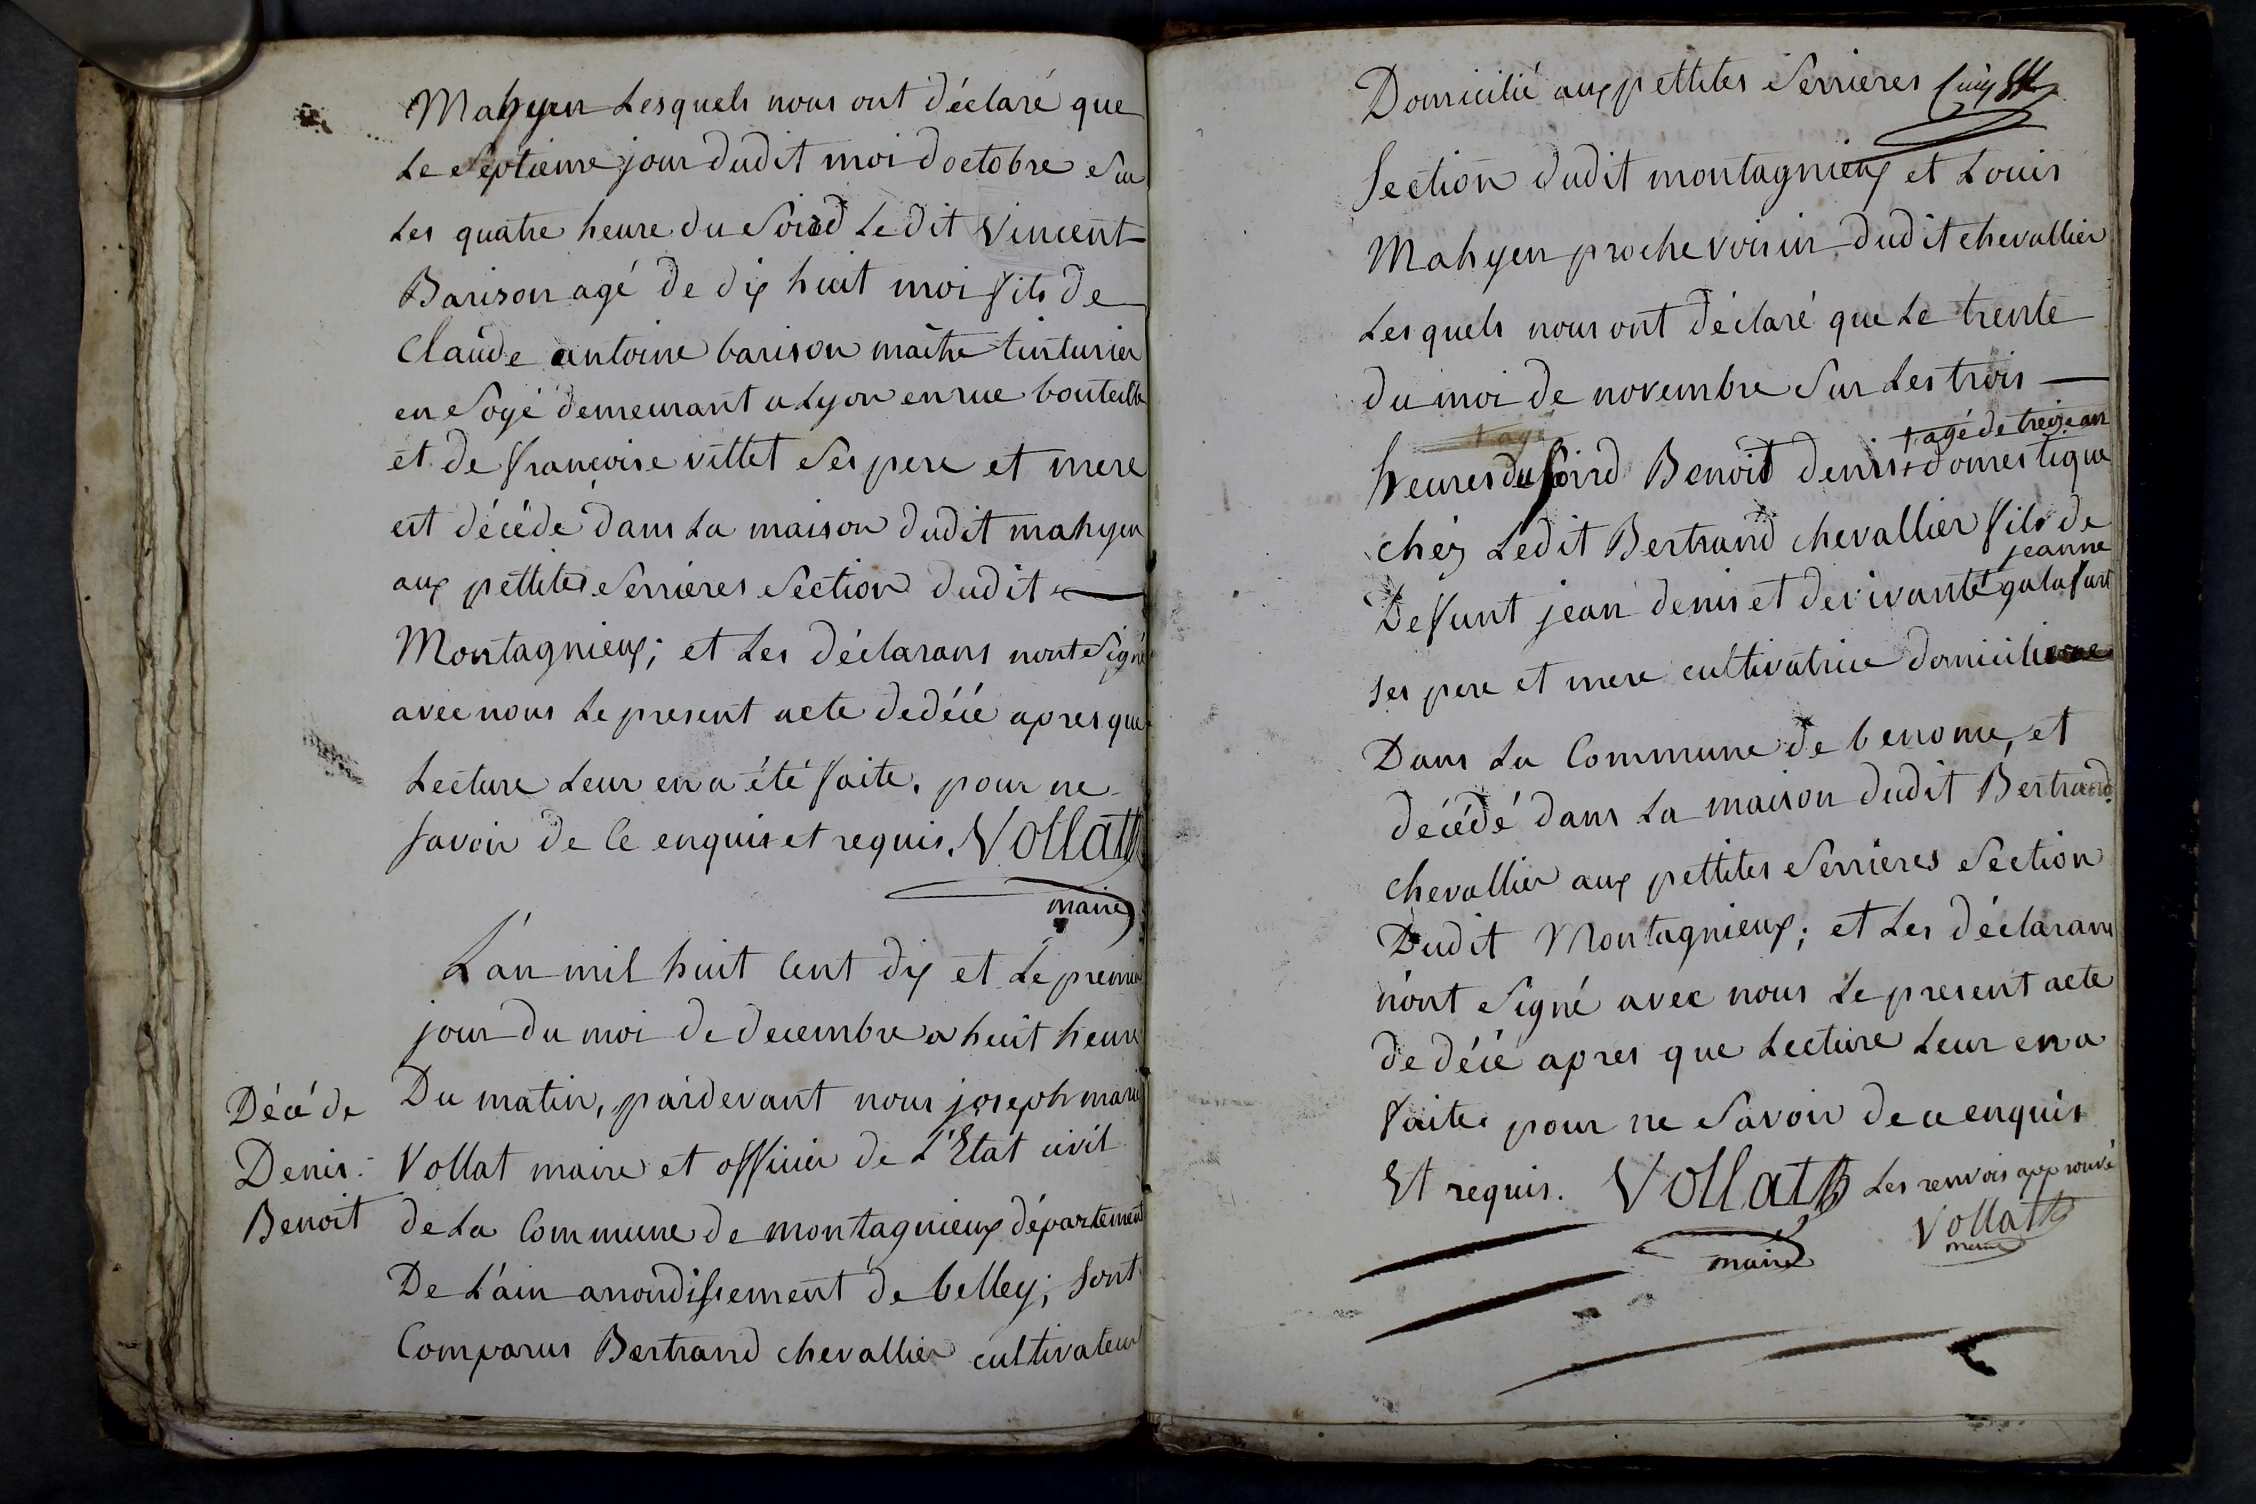 Mahyeu Lesquels nous ont déclaré que
Le Septieme jour dudit moi doctobre Sur
Les quatre heure du Soird Ledit Vincent
Barison agé de dix huit moi fils de
Claude antoine barison maitre tinturier
en Soyé demeurant a Lyon en rue bouteille
et de françoise villet Ses pere et mere
est décédé dans La maison dudit mahyeu
aux pettites Serrieres Section dudit
Montagnieux; et Les déclarans nont Signé
avec nous Le present acte dedécé apres que
Lecture Leur en a été faite. pour ne
Savoir de Ce enquis et requis. Vollat
maire
L'an mil huit Cent dix et Le premier
jour du moi de decembre a huit heure
Décé de
Denis
Benoit
Du matin, pardevant nous joseph marie
Vollat maire et officier de L'Etat civil
de La Commune de montagnieux département
De L'ain arrondissement de belley; Sont
Comparus Bertrand chevallier cultivateur
Domicilié aux pettites Serrieres
Section dudit montagnieux et Louis
Mahyeu proche voisin dudit chevallier
Lesquels nous ont déclaré que Le trente
du moi de novembre Sur Les trois
+ agé + agé de treize ans
heures du Soird Benoit denis + domestique
chéz Ledit Bertrand chevallier fils de
jeanne
Defunt jean denis et de vivante + galafant
Ses pere et mere cultivatrice domicilié
Dans La Commune de benonce, et
décédé dans La maison dudit Bertrand
chevallier aux pettites Serrieres Section
Dudit Montagnieux; et Les déclarans
nont Signé avec nous Le present acte
de décé apres que Lecture Leur en a
faite pour ne Savoir de ce enquis
Et requis. Vollat Les renvois approuvé
maire
Vollat
maire